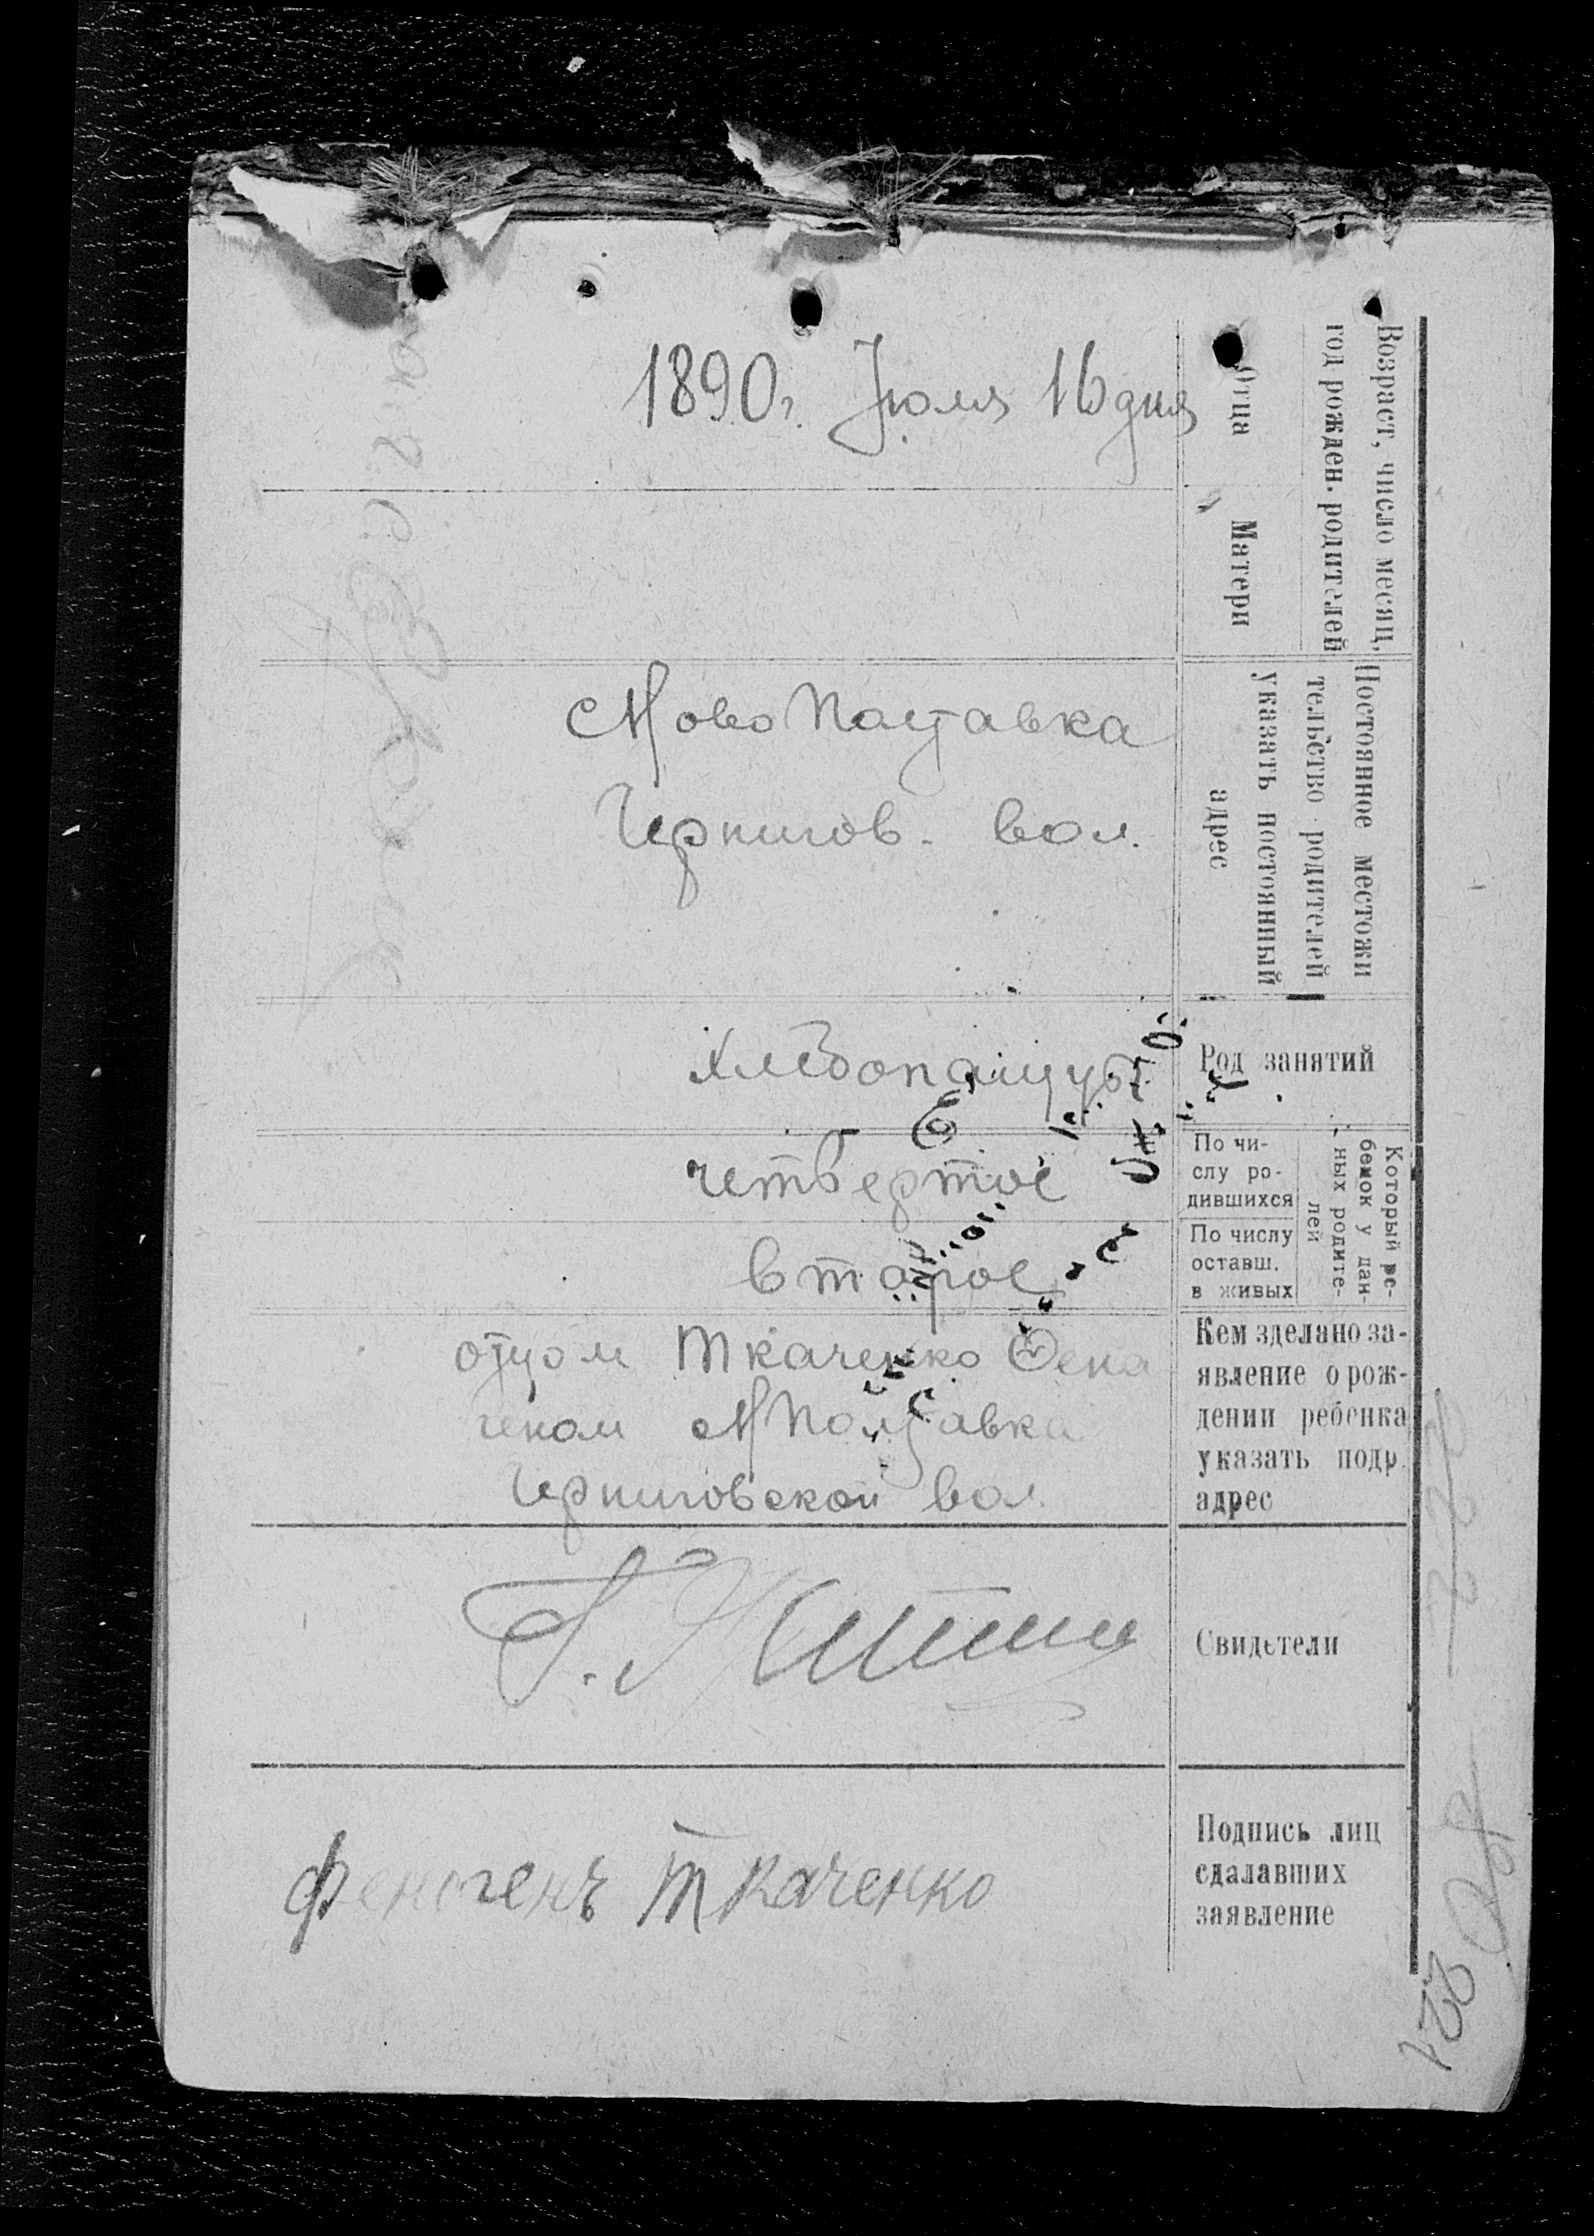 Возраст, число месяц,
год рожден. родителей
Отца
1890г. Июля 16 дня
Матери
Постоянное местожи
тельство родителей
указать постоянный
адрес
Ново Полтавка
Чернигов. вол.
Род занятий
хлебопащуй
Который ре-
бенок у дан-
ных родите-
лей
По чи-
слу ро-
дившихся
четвертое
По числу
оставш.
в живых
второе
Кем зделано за-
явление о рож-
дении ребенка
указать подр.
адрес
отцом Ткаченко Фена
геном НПолтавка
Черниговской вол.
Свидетели
Подпись лиц
сдалавших
заявление
Феногенъ Ткаченко